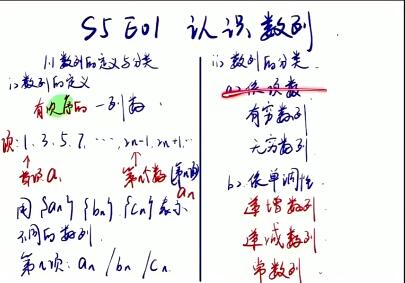 S5 E01 认识数列
1.1 数列的定义与分类
i> 数列的定义
有次序的一列数
项: 1, 3, 5, 7, ……, 2n-1, 2n+1, …
首项 a₁ 第n个数 (第n项) aₙ
用 {aₙ} {bₙ} {cₙ} 表示
不同的数列.
第n项: aₙ / bₙ / cₙ.
ii> 数列的分类.
a> 依项数
有穷数列
无穷数列
b> 依单调性
递增数列
递减数列
常数列